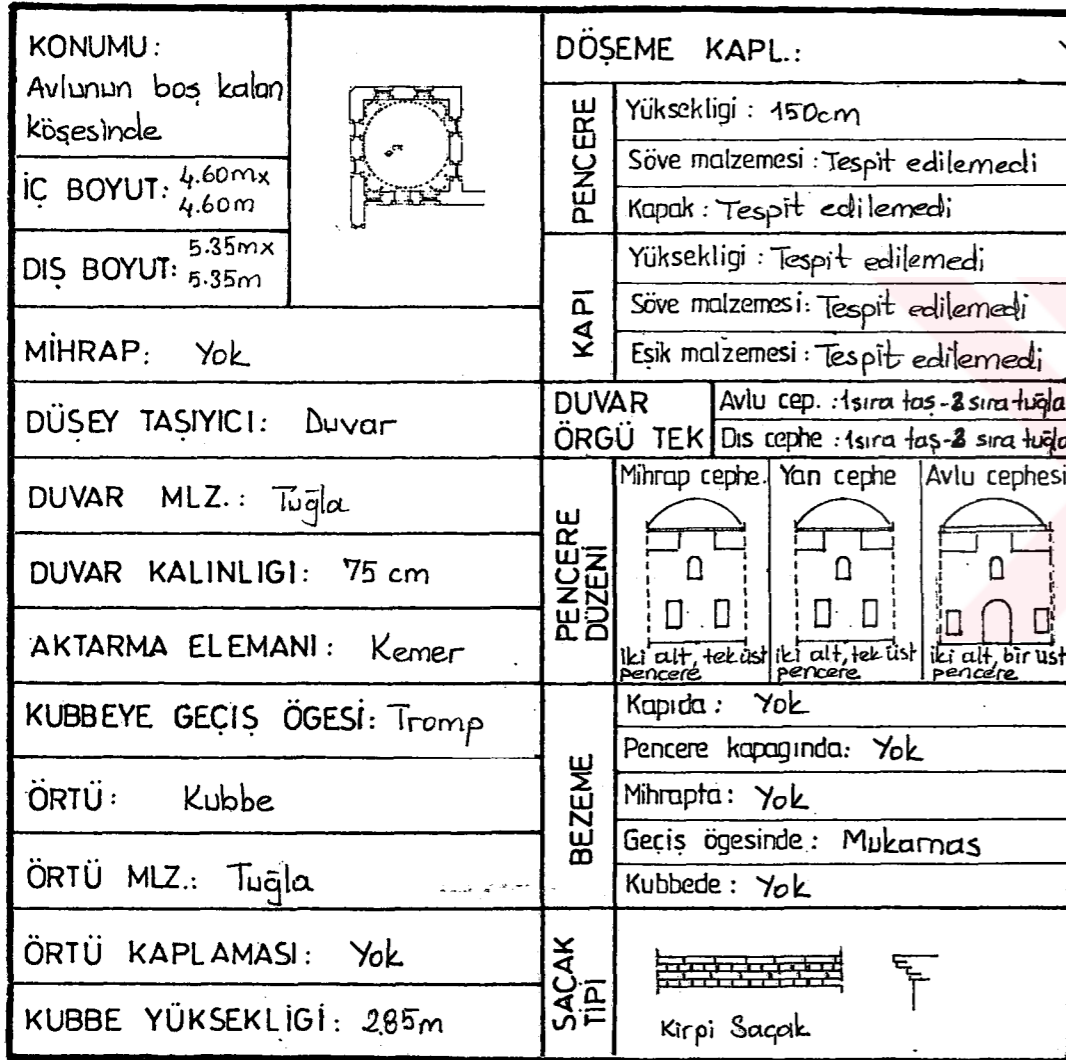 KONUMU:
Avlunun boş kalan
köşesinde
İÇ BOYUT: 4.60mx
4.60m
DIŞ BOYUT: 5.35mx
5.35m
MİHRAP: Yok
DÜŞEY TAŞIYICI: Duvar
DUVAR MLZ.: Tuğla
DUVAR KALINLIGI: 75 cm
AKTARMA ELEMANI: Kemer
KUBBEYE GEÇİŞ ÖGESİ: Tromp
ÖRTÜ: Kubbe
ÖRTÜ MLZ.: Tuğla
ÖRTÜ KAPLAMASI: Yok
KUBBE YÜKSEKLİGİ: 2.85m
DÖŞEME KAPL.:
PENCERE
Yüksekligi: 150cm
Söve malzemesi: Tespit edilemedi
Kapak: Tespit edilemedi
KAPI
Yüksekligi: Tespit edilemedi
Söve malzemesi: Tespit edilemedi
Eşik malzemesi: Tespit edilemedi
DUVAR
ÖRGÜ TEK
Avlu cep.: 1sıra taş-2 sıra tuğla
Dıs cephe: 1sıra taş-2 sıra tuğla
PENCERE
DÜZENİ
Mihrap cephe.
iki alt, tek üst
pencere
Yan cephe
iki alt, tek üst
pencere
Avlu cephesi
iki alt, bir üst
pencere
BEZEME
Kapıda: Yok
Pencere kapagında: Yok
Mihrapta: Yok
Geçiş ögesinde: Mukarnas
Kubbede: Yok
SAÇAK
TİPİ
Kirpi Saçak